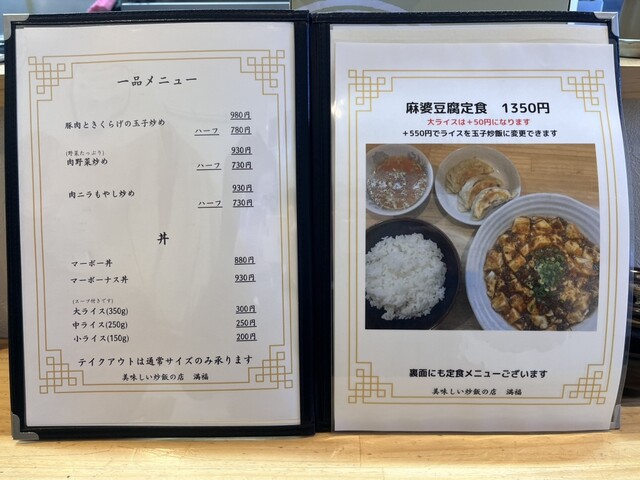 一品メニュー
豚肉ときくらげの玉子炒め 980円
ハーフ 780円
(野菜たっぷり)
肉野菜炒め 930円
ハーフ 730円
肉ニラもやし炒め 930円
ハーフ 730円
丼
マーボー丼 880円
マーボーナス丼 930円
(スープ付きです)
大ライス(350g) 300円
中ライス(250g) 250円
小ライス(150g) 200円
テイクアウトは通常サイズのみ承ります
美味しい炒飯の店 満福
麻婆豆腐定食 1350円
大ライスは+50円になります
+550円でライスを玉子炒飯に変更できます
裏面にも定食メニューございます
美味しい炒飯の店 満福